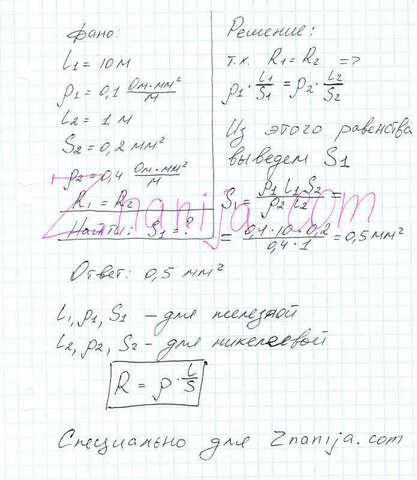 Дано:
L₁ = 10 м
ρ₁ = 0,1 Ом·мм²/м
L₂ = 1 м
S₂ = 0,2 мм²
ρ₂ = 0,4 Ом·мм²/м
R₁ = R₂
Найти: S₁ = ?
Решение:
т.к. R₁ = R₂ =>
ρ₁ · L₁/S₁ = ρ₂ · L₂/S₂
Из этого равенства
выведем S₁
S₁ = ρ₁ L₁ S₂ / ρ₂ L₂ =
= 0,1 · 10 · 0,2 / 0,4 · 1 = 0,5 мм²
Ответ: 0,5 мм²
L₁, ρ₁, S₁ – для железной
L₂, ρ₂, S₂ – для никелевой
R = ρ · L/S
Специально для Znanija.com
Znanija.com